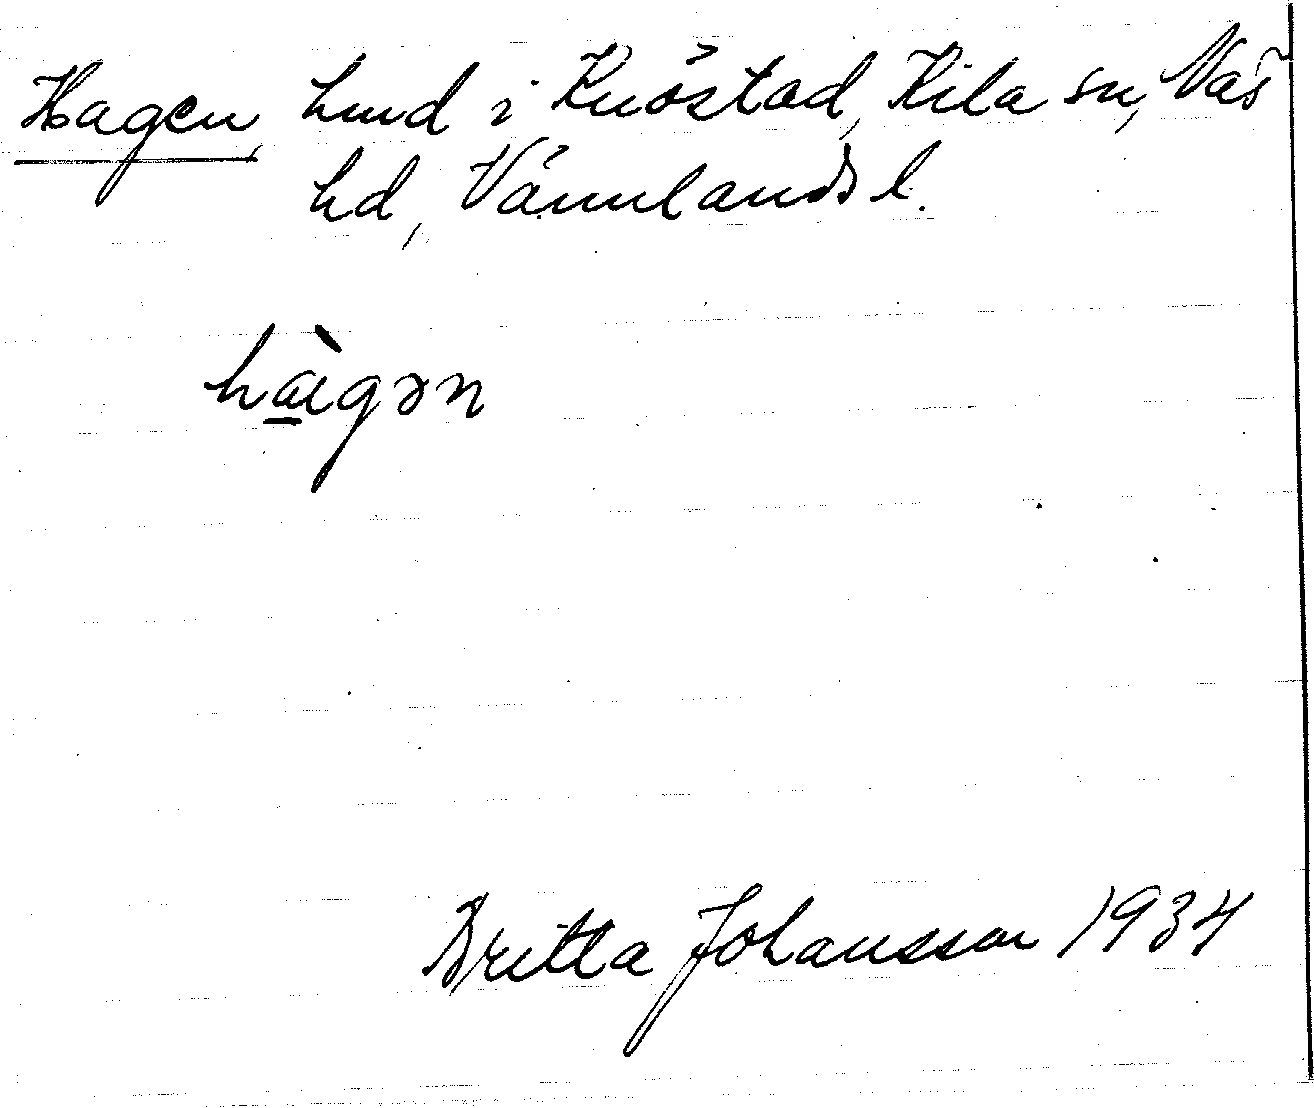 Hagen, lund i Knöstad, Kila sn, Näs
hd, Värmlands l.
hægən
Britta Johansson 1934